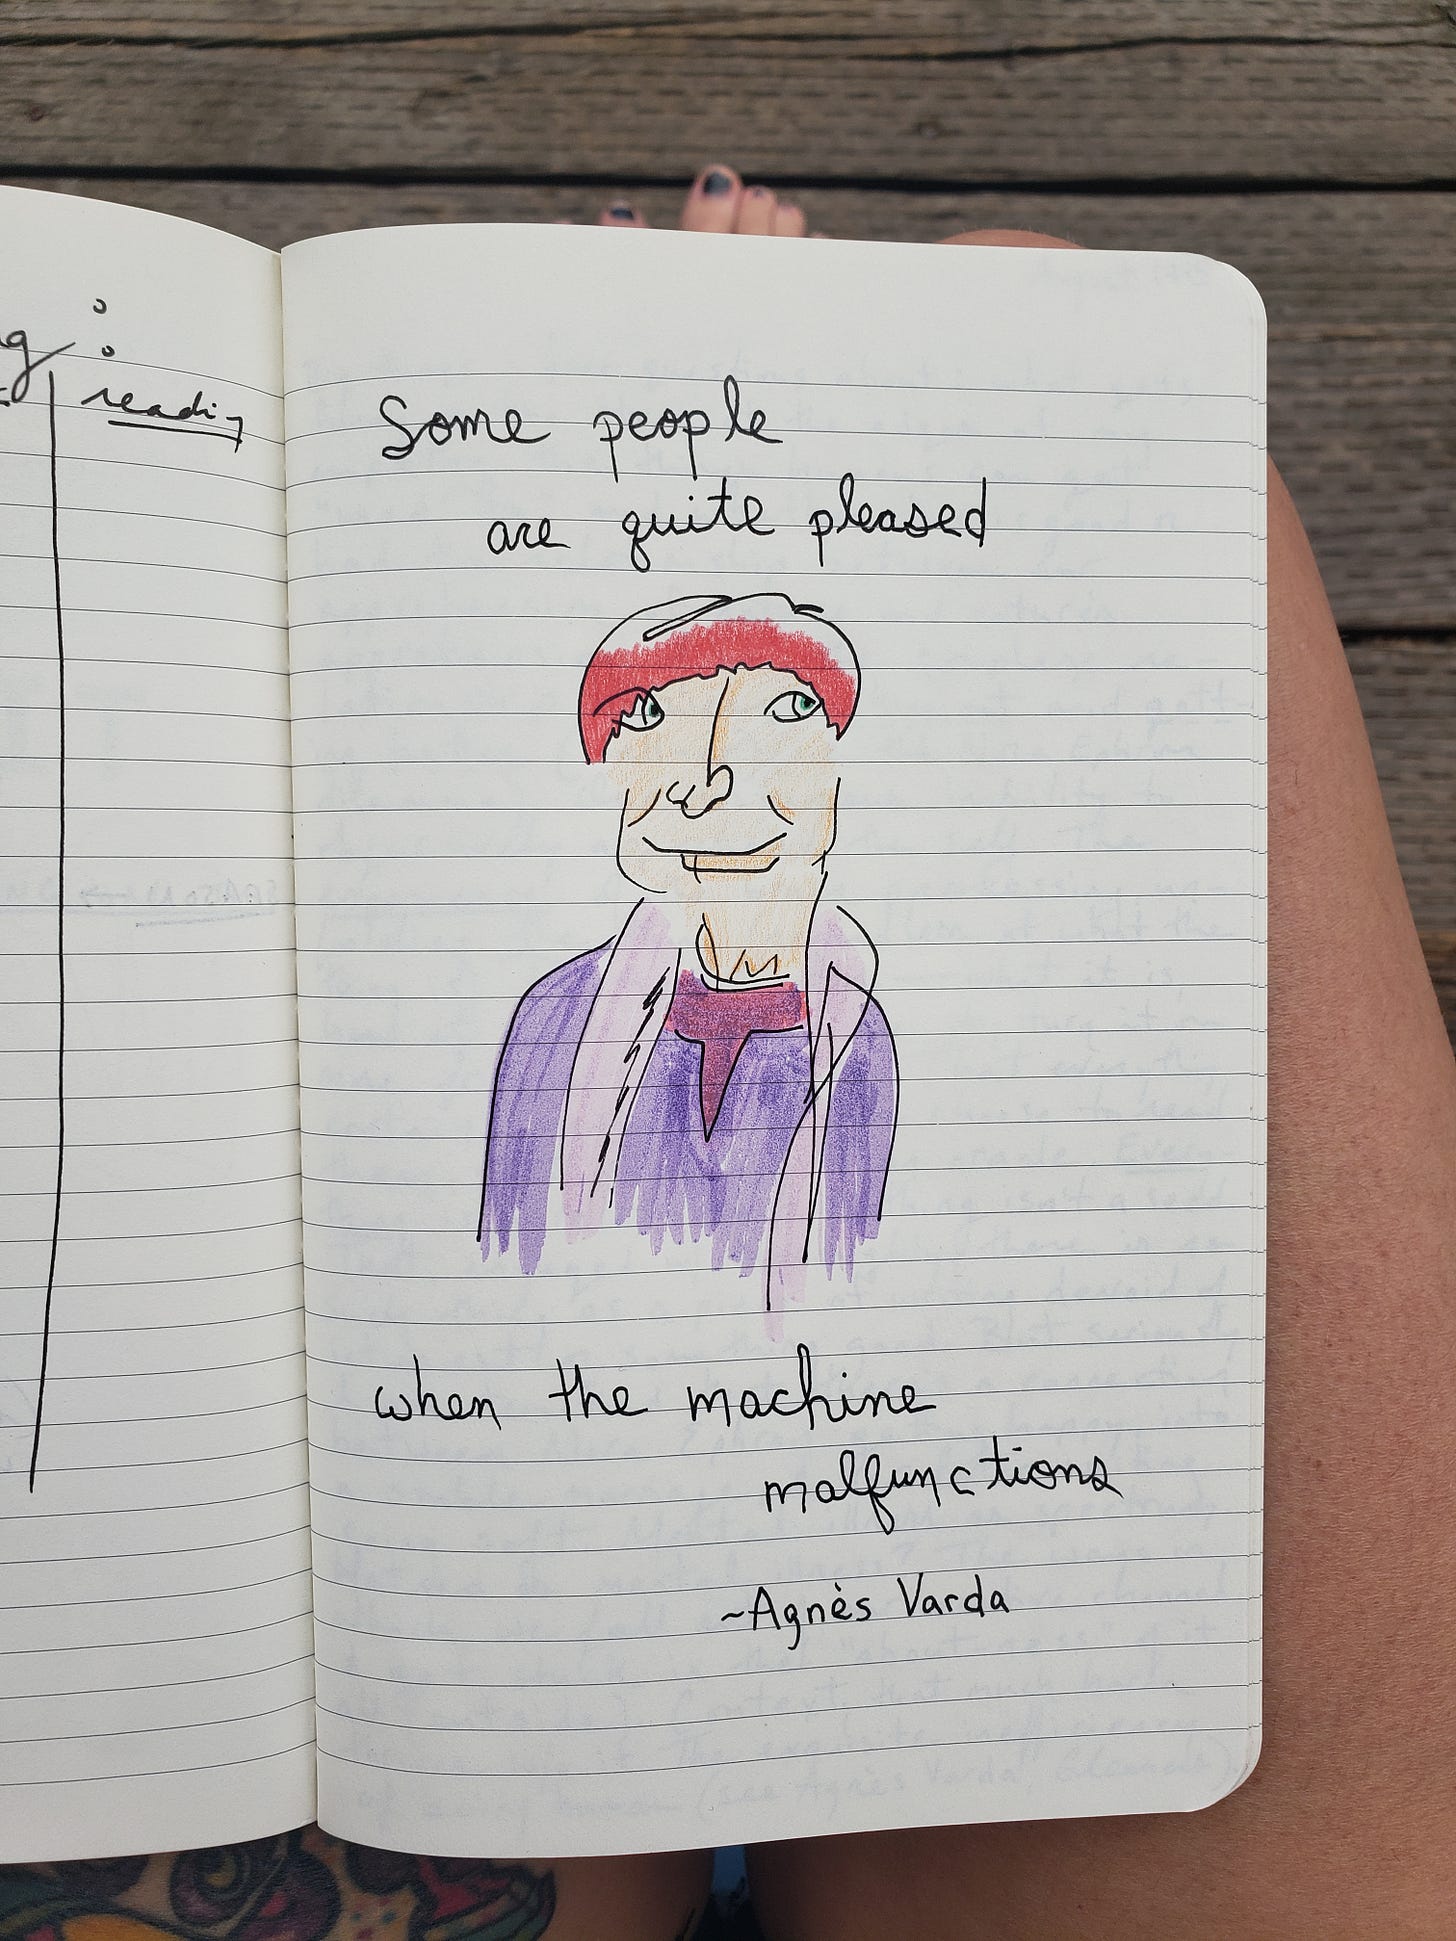 reading
Some people
are quite pleased
when the machine
malfunctions
~Agnès Varda